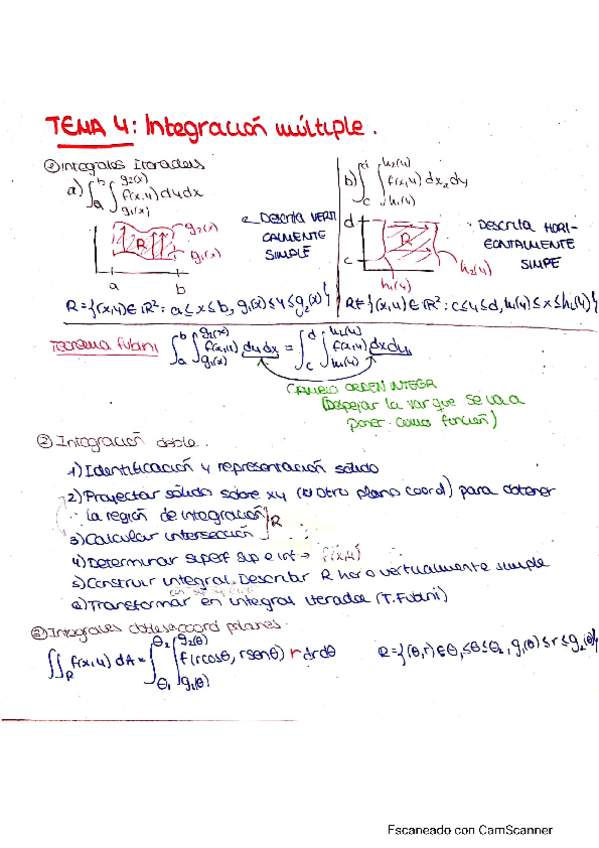 TEMA 4: Integración múltiple.
① Integrales Iteradas
a) ∫_a^b ∫_{g₁(x)}^{g₂(x)} f(x,y) dy dx
g₂(x)
R
g₁(x)
a b
DESCRITA VERTI
CALMENTE
SIMPLE
R={(x,y)∈ℝ²: a≤x≤b, g₁(x)≤y≤g₂(x)}
b) ∫_c^d ∫_{h₁(y)}^{h₂(y)} f(x,y) dx dy
d
R
c
h₁(y)
h₂(y)
DESCRITA HORI-
ZONTALMENTE
SIMPE
R={(x,y)∈ℝ²: c≤y≤d, h₁(y)≤x≤h₂(y)}
Teorema Fubini ∫_a^b ∫_{g₁(x)}^{g₂(x)} f(x,y) dy dx = ∫_c^d ∫_{h₁(y)}^{h₂(y)} f(x,y) dx dy
CAMBIO ORDEN INTEGRA
(Despejar la var que se va a
poner como función)
② Integración doble.
1) Identificación y representación sólido
2) Proyectar sólido sobre xy (o otro plano coord) para obtener
la región de integración R
3) Calcular intersección
4) Determinar superf sup e inf → f(x,y)
5) Construir integral. Describir R hor o verticalmente simple
6) Transformar en integral iterada (T. Fubini)
③ Integrales dobles coord polares.
∬_R f(x,y) dA = ∫_{θ₁}^{θ₂} ∫_{g₁(θ)}^{g₂(θ)} f(rcosθ, rsenθ) r dr dθ
R={(θ,r)∈θ₁≤θ≤θ₂, g₁(θ)≤r≤g₂(θ)}
Escaneado con CamScanner